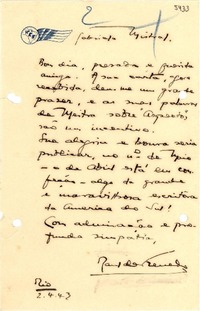 5433
2
Gabriela Mistral.
Bom dia, prezada e querida
amiga. A sua carta, hoje
recebida, deu-me um grande
prazer, e as suas palavras
de Mestra sobre
são um incentivo.
Sua alegria e honra seria
publicar, no nº de
de Abril está em
algo da grande
e maravilhosa escritora
da America do Sul!
Com admiração e pro-
funda simpatia,
Rio
2.4.43